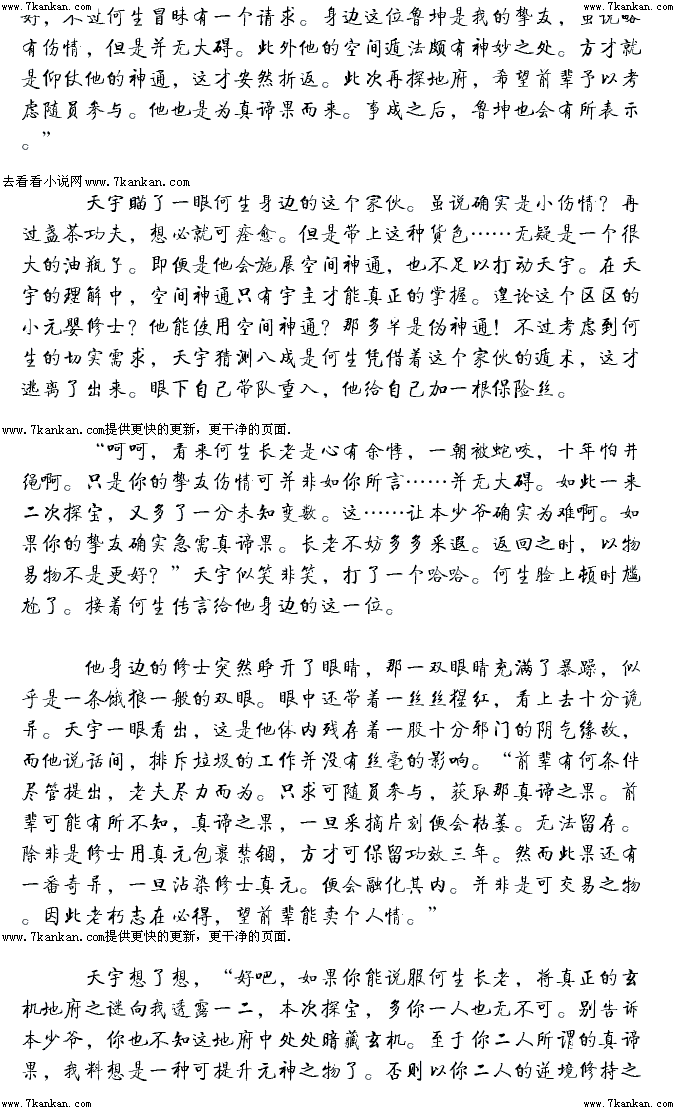 www.7kankan.com www.7kankan.com
好，不过何生冒昧有一个请求。身边这位鲁坤是我的挚友，虽说略
有伤情，但是并无大碍。此外他的空间遁法颇有神妙之处。方才就
是仰仗他的神通，这才安然折返。此次再探地府，希望前辈予以考
虑随员参与。他也是为真谛果而来。事成之后，鲁坤也会有所表示
。”
去看看小说网www.7kankan.com
天宇瞄了一眼何生身边的这个家伙。虽说确实是小伤情？再
过盏茶功夫，想必就可痊愈。但是带上这种货色……无疑是一个很
大的油瓶子。即便是他会施展空间神通，也不足以打动天宇。在天
宇的理解中，空间神通只有宇主才能真正的掌握。遑论这个区区的
小元婴修士？他能使用空间神通？那多半是伪神通！不过考虑到何
生的切实需求，天宇猜测八成是何生凭借着这个家伙的遁术，这才
逃离了出来。眼下自己带队重入，他给自己加一根保险丝。
www.7kankan.com提供更快的更新，更干净的页面.
“呵呵，看来何生长老是心有余悸，一朝被蛇咬，十年怕井
绳啊。只是你的挚友伤情可并非如你所言……并无大碍。如此一来
二次探宝，又多了一分未知变数。这……让本少爷确实为难啊。如
果你的挚友确实急需真谛果。长老不妨多多采遐。返回之时，以物
易物不是更好？”天宇似笑非笑，打了一个哈哈。何生脸上顿时尴
尬了。接着何生传言给他身边的这一位。
他身边的修士突然睁开了眼睛，那一双眼睛充满了暴躁，似
乎是一条饿狼一般的双眼。眼中还带着一丝丝猩红，看上去十分诡
异。天宇一眼看出，这是他体内残存着一股十分邪门的阴气缘故，
而他说话间，排斥垃圾的工作并没有丝毫的影响。“前辈有何条件
尽管提出，老夫尽力而为。只求可随员参与，获取那真谛之果。前
辈可能有所不知，真谛之果，一旦采摘片刻便会枯萎。无法留存。
除非是修士用真元包裹禁锢，方才可保留功效三年。然而此果还有
一番奇异，一旦沾染修士真元。便会融化其内。并非是可交易之物
。因此老朽志在必得，望前辈能卖个人情。”
www.7kankan.com提供更快的更新，更干净的页面.
天宇想了想，“好吧，如果你能说服何生长老，将真正的玄
机地府之谜向我透露一二，本次探宝，多你一人也无不可。别告诉
本少爷，你也不知这地府中处处暗藏玄机。至于你二人所谓的真谛
果，我料想是一种可提升元神之物了。否则以你二人的逆境修持之
www.7kankan.com www.7kankan.com